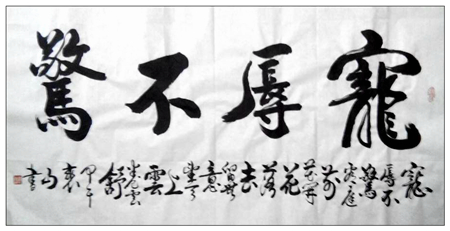 寵辱不驚
寵
辱不
驚
庭
前
花開
花
落
去
留無
意
望天
上
雲
卷雲
舒
甲午
書